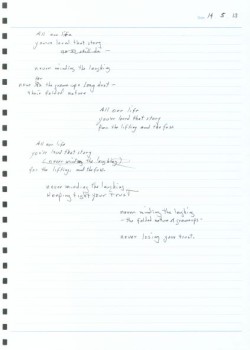 14 5 13
All our life
you've loved that story
never minding the laughing
or
never the grown-ups long dust —
their folded nature
All our life
you've loved that story
for the lifting and the fast
All our life
you've loved that story
(never minding the laughing)
for the lifting and the fast.
never minding the laughing
keeping tight your trust
never minding the laughing
— the folded nature of grown-ups —
never losing your trust.